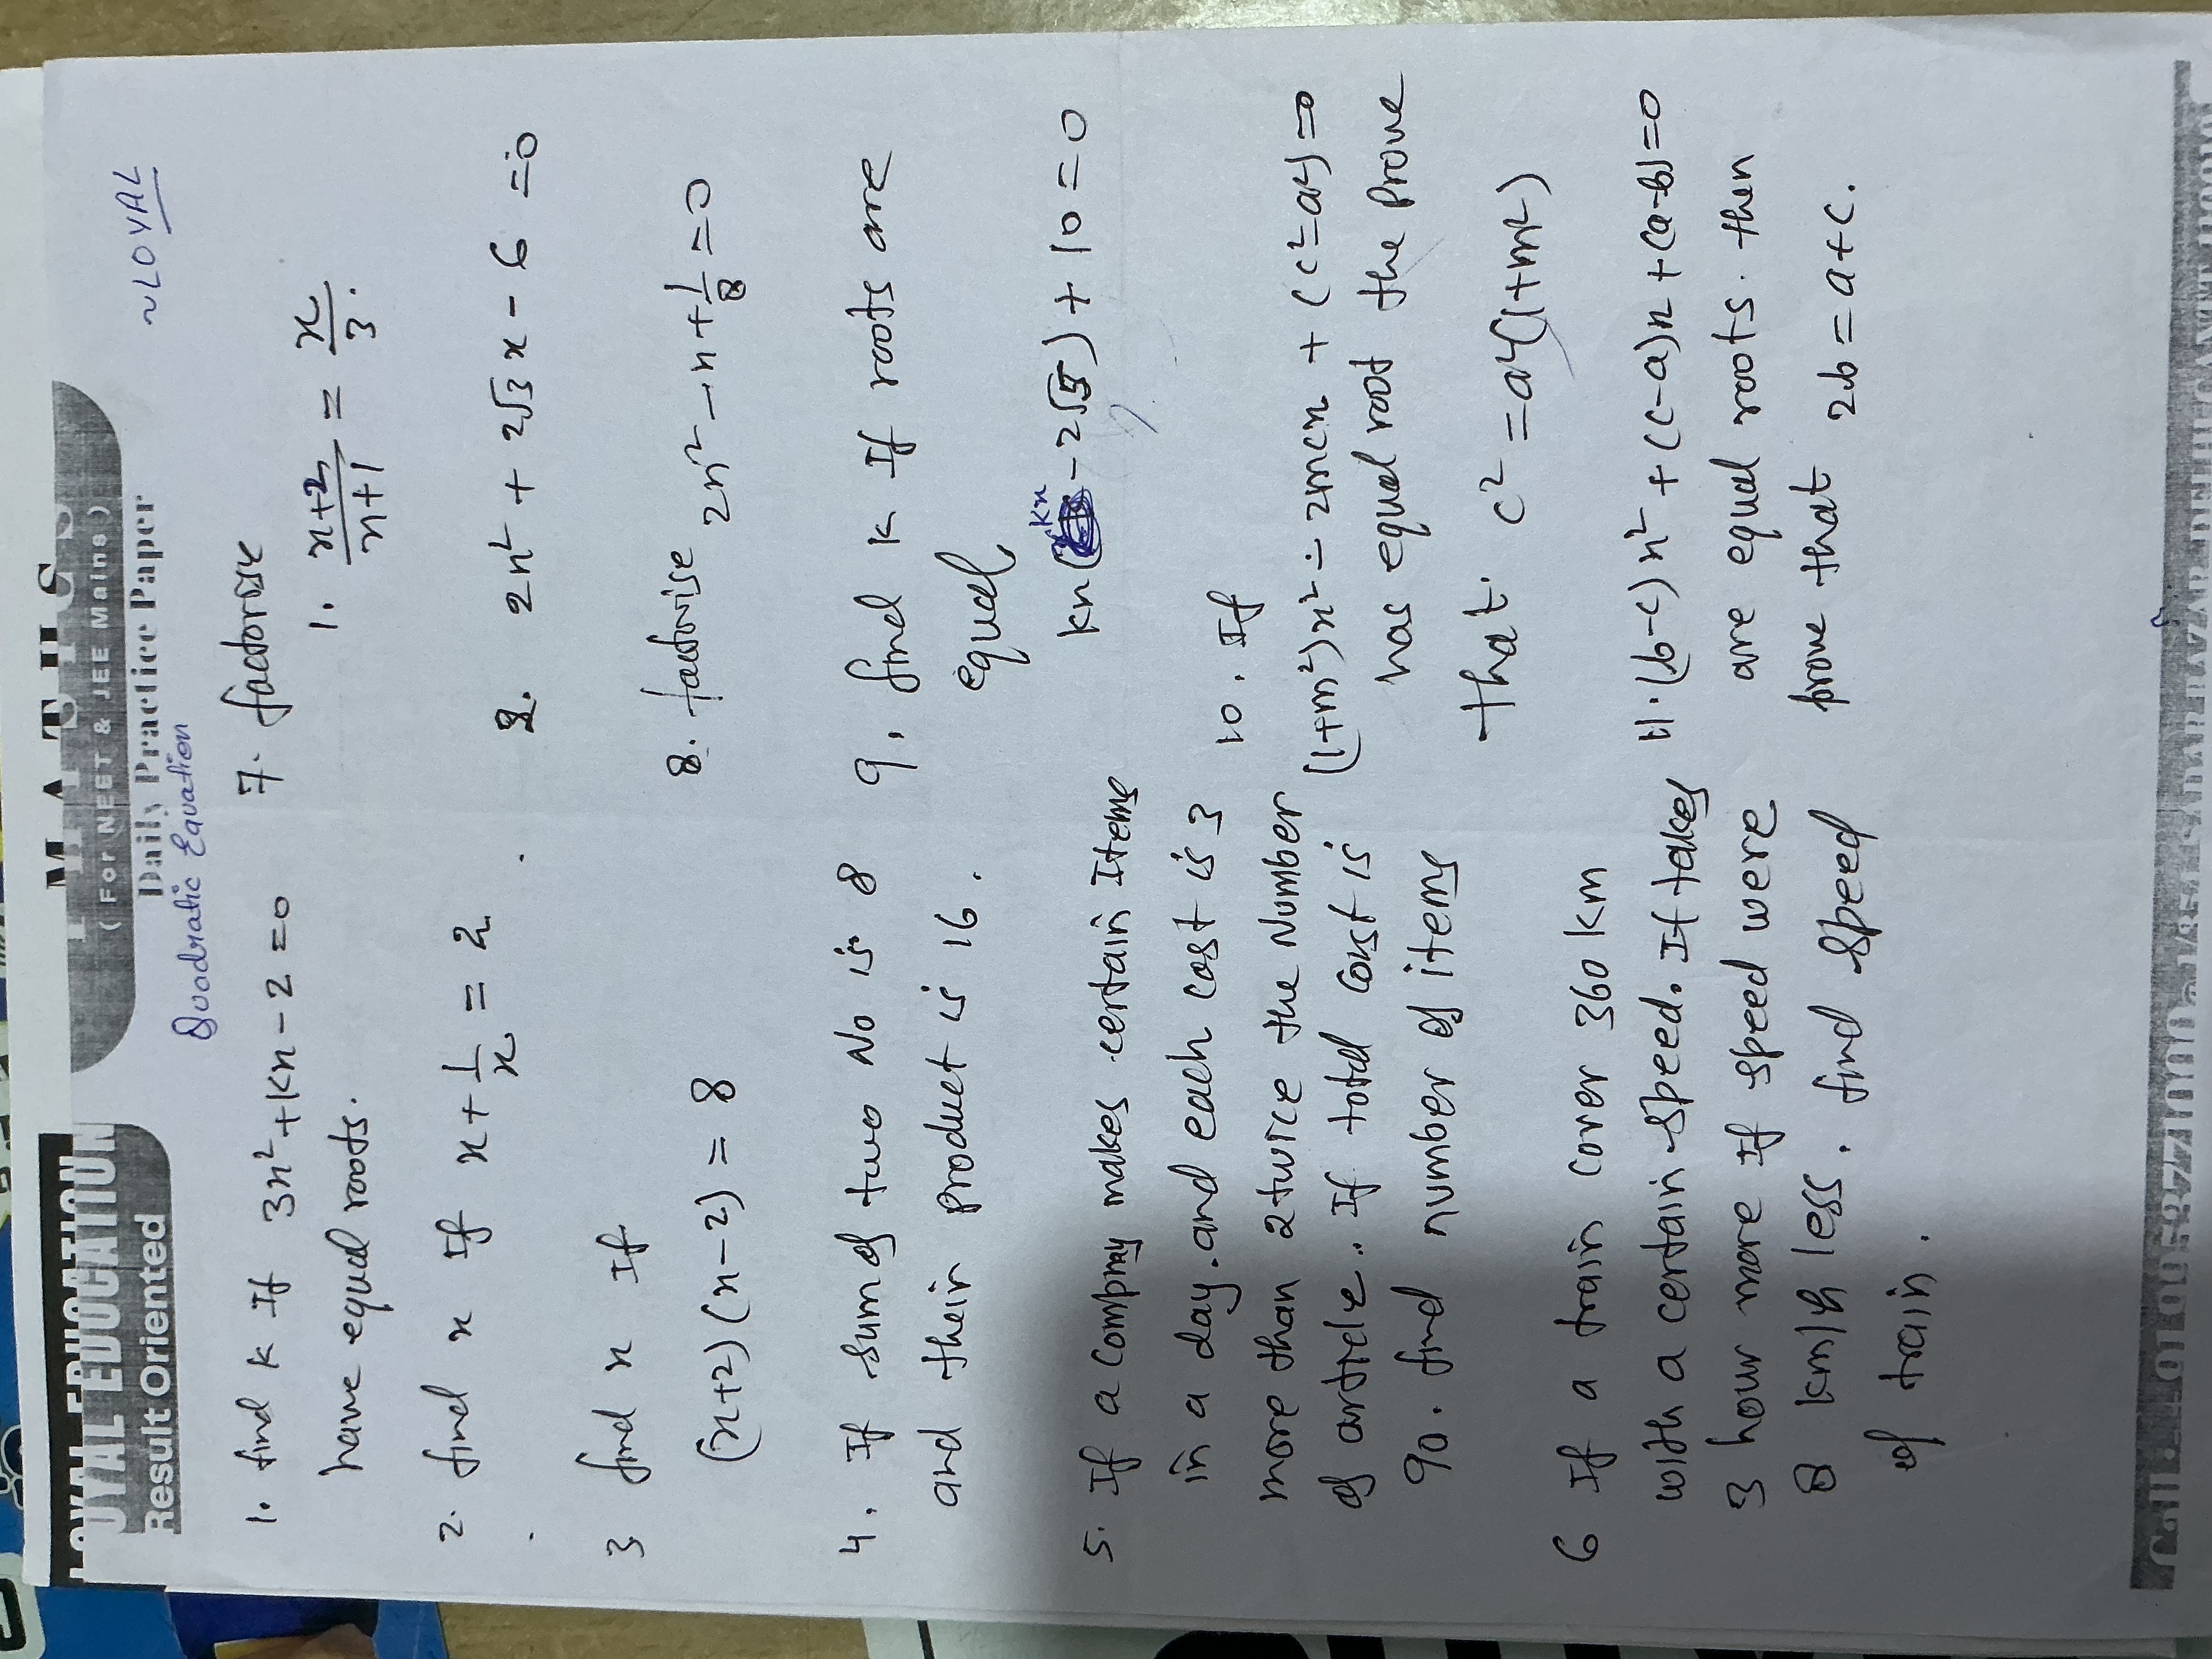 LOYAL EDUCATION
Result Oriented
MATHS
( For NEET & JEE Mains )
Daily Practice Paper
Quadratic Equation
~LOYAL
1. find k If 3x²+kx-2=0
have equal roots.
2. find x If x+1/x=2
3 find x If
(x+2)(x-2)=8
4. If sum of two No is 8
and their product is 16.
5. If a company makes certain Items
in a day. and each cost is 3
more than 2 twice the Number
of article. If total cost is
90. find number of items
6 If a train cover 360 km
with a certain speed. If takes
3 hour more If speed were
8 km/h less. find speed
of train.
7. factorise
1. x+2/x+1 = x/3.
2. 2x²+2√3x-6=0
8. factorise
2x²-x+1/8=0
9. find k If roots are
equal
kx(kx-2√5)+10=0
10. If
(1+m²)x²-2mcx+(c²-a²)=0
has equal root the prove
that. c²=a²(1+m²)
11. (b-c)x²+(c-a)x+(a-b)=0
are equal roots. then
prove that 2b=a+c.